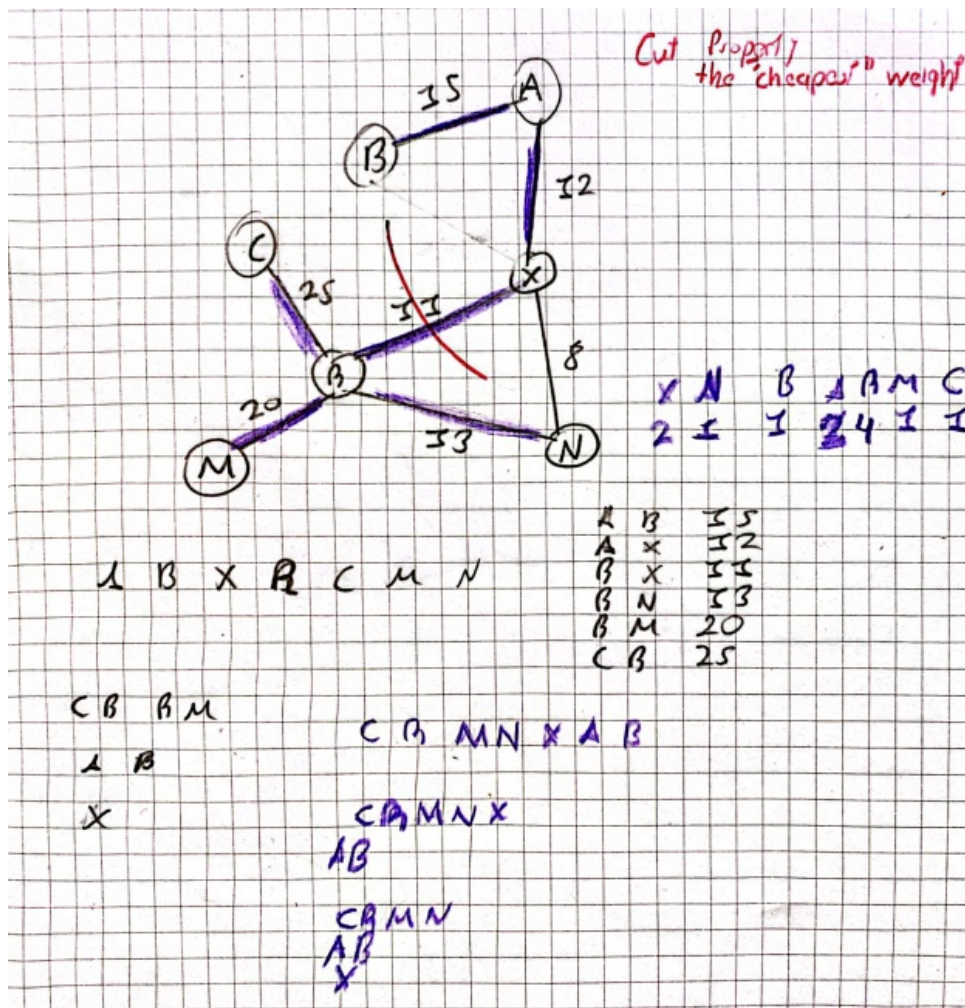 Cut Property
the "cheapest" weight
15
A
B
12
C
X
25
11
8
B
20
13
M
N
X N B A B M C
2 1 1 2 4 1 1
A B 15
A X 12
B X 11
B N 13
B M 20
C B 25
A B X B C M N
C B B M
A B
X
C B M N X A B
C B M N X
A B
C B M N
A B
X